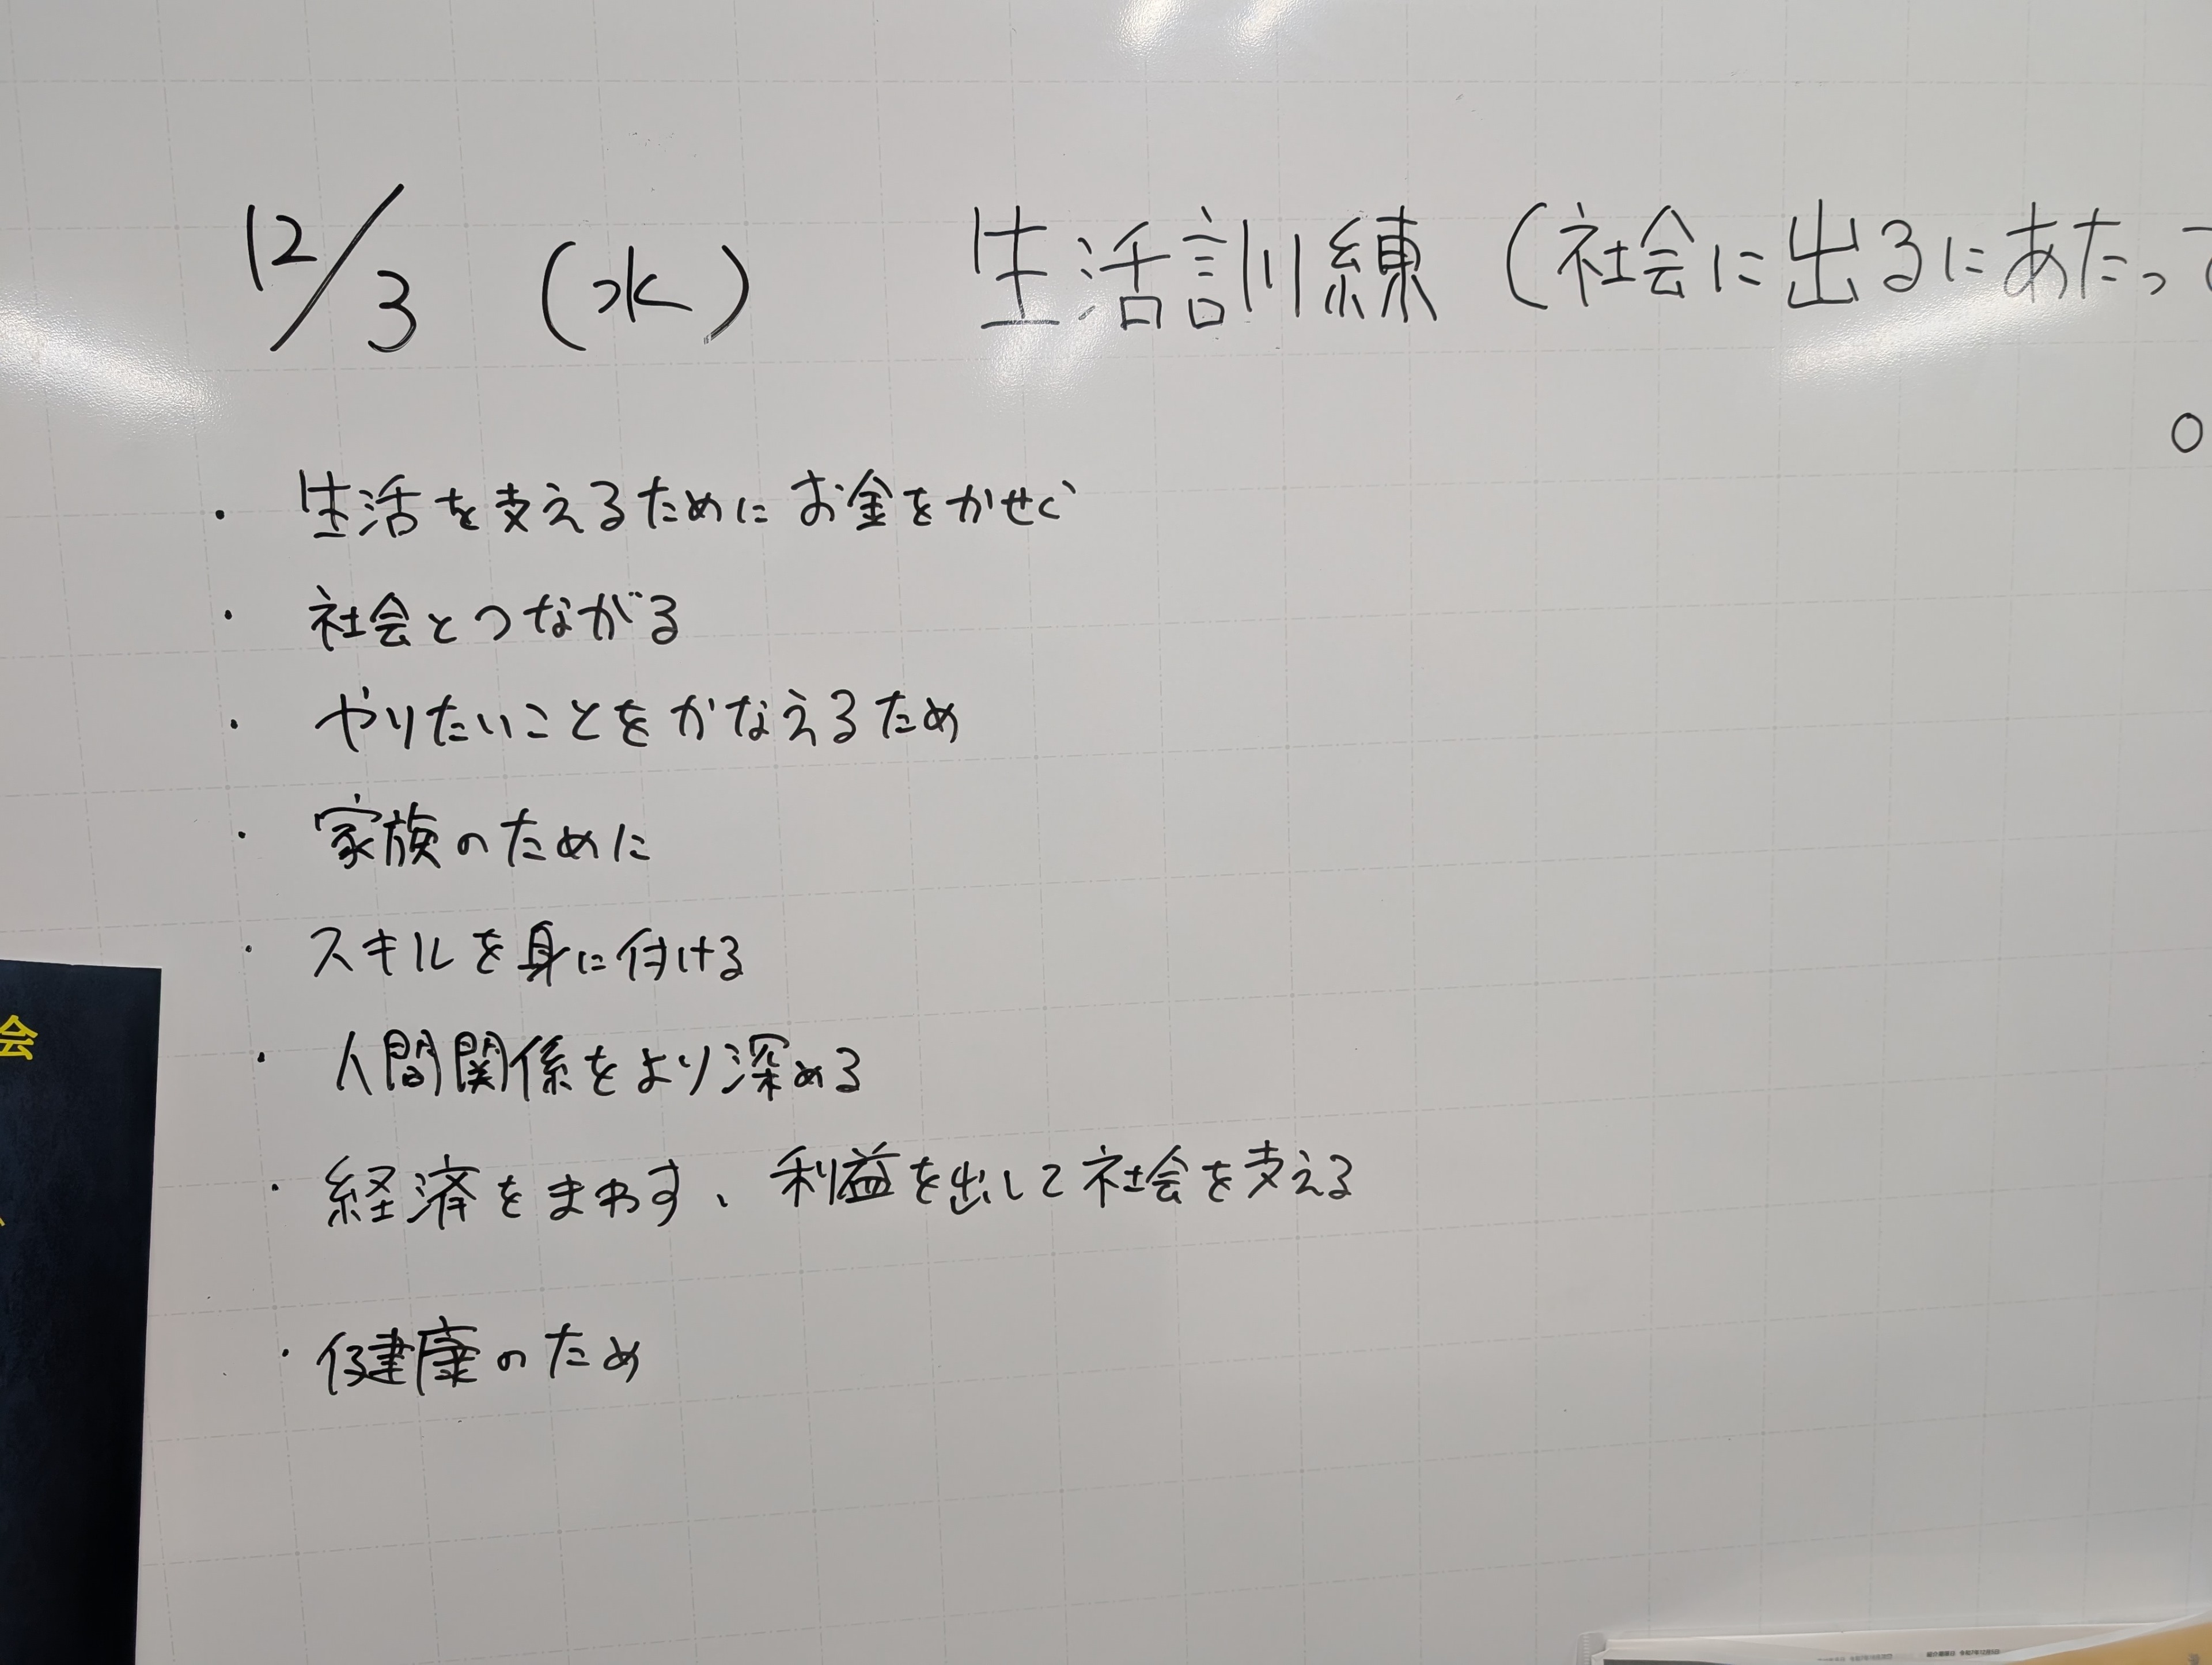 12/3 (水) 生活訓練 (社会に出るにあたって
・ 生活を支えるためにお金をかせぐ
・ 社会とつながる
・ やりたいことをかなえるため
・ 家族のために
・ スキルを身に付ける
・ 人間関係をより深める
・ 経済をまわす、利益を出して社会を支える
・ 健康のため
会